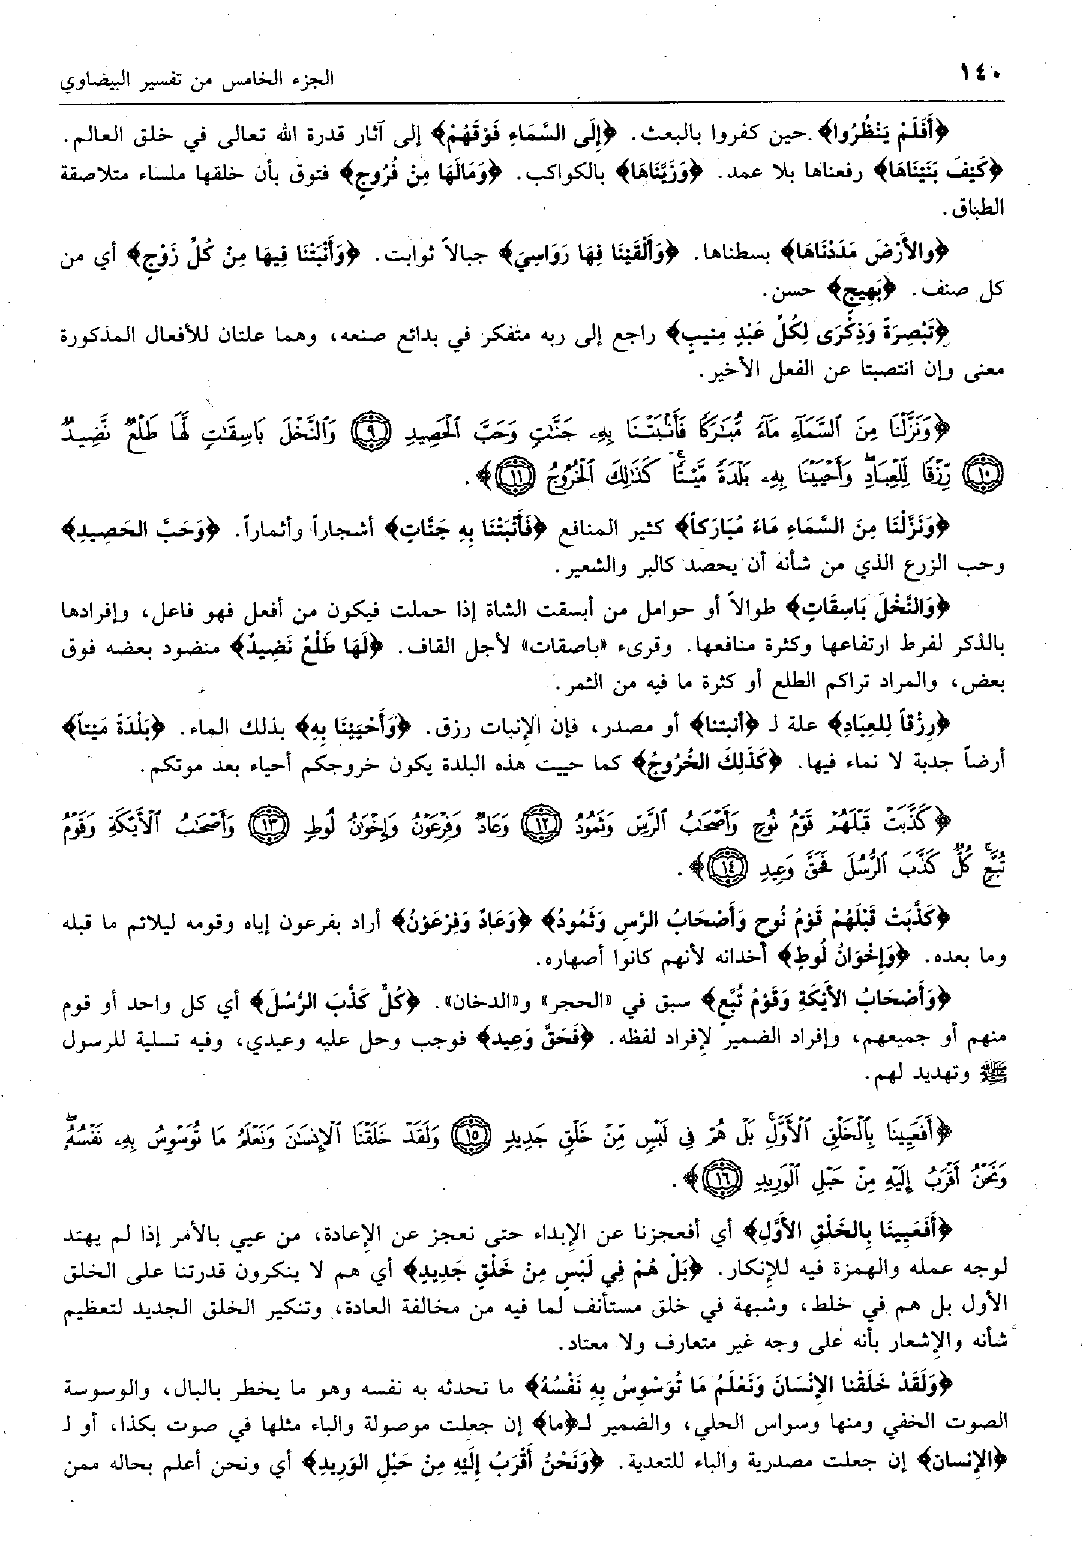 ١٤٠
الجزء الخامس من تفسير البيضاوي
﴿أَفَلَمْ يَنْظُرُوا﴾ حين كفروا بالبعث. ﴿إِلَى السَّمَاءِ فَوْقَهُمْ﴾ إلى آثار قدرة الله تعالى في خلق العالم.
﴿كَيْفَ بَنَيْنَاهَا﴾ رفعناها بلا عمد. ﴿وَزَيَّنَاهَا﴾ بالكواكب. ﴿وَمَالَهَا مِنْ فُرُوجٍ﴾ فتوق بأن خلقها ملساء متلاصقة
الطباق.
﴿والأَرْضَ مَدَدْنَاهَا﴾ بسطناها. ﴿وَأَلْقَيْنَا فِهَا رَوَاسِيَ﴾ جبالاً ثوابت. ﴿وَأَنْبَتْنَا فِيهَا مِنْ كُلِّ زَوْجٍ﴾ أي من
كل صنف. ﴿بَهِيجٍ﴾ حسن.
﴿تَبْصِرَةً وَذِكْرَى لِكُلِّ عَبْدٍ مُنِيبٍ﴾ راجع إلى ربه متفكر في بدائع صنعه، وهما علتان للأفعال المذكورة
معنى وإن انتصبتا عن الفعل الأخير.
﴿وَنَزَّلْنَا مِنَ ٱلسَّمَآءِ مَآءً مُّبَٰرَكًا فَأَنۢبَتْنَا بِهِۦ جَنَّٰتٍ وَحَبَّ ٱلْحَصِيدِ ۝٩ وَٱلنَّخْلَ بَاسِقَٰتٍ لَّهَا طَلْعٌ نَّضِيدٌ
۝١٠ رِّزْقًا لِّلْعِبَادِ ۖ وَأَحْيَيْنَا بِهِۦ بَلْدَةً مَّيْتًا ۚ كَذَٰلِكَ ٱلْخُرُوجُ ۝١١﴾.
﴿وَنَزَّلْنَا مِنَ السَّمَاءِ مَاءً مُبَارَكاً﴾ كثير المنافع ﴿فَأَنْبَتْنَا بِهِ جَنَّاتٍ﴾ أشجاراً وأثماراً. ﴿وَحَبَّ الحَصِيدِ﴾
وحب الزرع الذي من شأنه أن يحصد كالبر والشعير.
﴿وَالنَّخْلَ بَاسِقَاتٍ﴾ طوالاً أو حوامل من أبسقت الشاة إذا حملت فيكون من أفعل فهو فاعل، وإفرادها
بالذكر لفرط ارتفاعها وكثرة منافعها. وقرىء «باصقات» لأجل القاف. ﴿لَهَا طَلْعٌ نَضِيدٌ﴾ منضود بعضه فوق
بعض، والمراد تراكم الطلع أو كثرة ما فيه من الثمر.
﴿رِزْقاً لِلعِبَادِ﴾ علة لـ ﴿أنبتنا﴾ أو مصدر، فإن الإنبات رزق. ﴿وَأَحْيَيْنَا بِهِ﴾ بذلك الماء. ﴿بَلْدَةً مَيْتاً﴾
أرضاً جدبة لا نماء فيها. ﴿كَذَلِكَ الخُرُوجُ﴾ كما حييت هذه البلدة يكون خروجكم أحياء بعد موتكم.
﴿كَذَّبَتْ قَبْلَهُمْ قَوْمُ نُوحٍ وَأَصْحَٰبُ ٱلرَّسِّ وَثَمُودُ ۝١٢ وَعَادٌ وَفِرْعَوْنُ وَإِخْوَٰنُ لُوطٍ ۝١٣ وَأَصْحَٰبُ ٱلْأَيْكَةِ وَقَوْمُ
تُبَّعٍ ۚ كُلٌّ كَذَّبَ ٱلرُّسُلَ فَحَقَّ وَعِيدِ ۝١٤﴾.
﴿كَذَّبَتْ قَبْلَهُمْ قَوْمُ نُوحٍ وَأَصْحَابُ الرَّسِ وَثَمُودُ﴾ ﴿وَعَادٌ وَفِرْعَوْنُ﴾ أراد بفرعون إياه وقومه ليلائم ما قبله
وما بعده. ﴿وَإِخْوَانُ لُوطٍ﴾ أخدانه لأنهم كانوا أصهاره.
﴿وَأَصْحَابُ الأَيْكَةِ وَقَوْمُ تُبَّعٍ﴾ سبق في «الحجر» و«الدخان». ﴿كُلٌّ كَذَّبَ الرُّسُلَ﴾ أي كل واحد أو قوم
منهم أو جميعهم، وإفراد الضمير لإفراد لفظه. ﴿فَحَقَّ وَعِيد﴾ فوجب وحل عليه وعيدي، وفيه تسلية للرسول
ﷺ وتهديد لهم.
﴿أَفَعَيِينَا بِٱلْخَلْقِ ٱلْأَوَّلِ ۚ بَلْ هُمْ فِى لَبْسٍ مِّنْ خَلْقٍ جَدِيدٍ ۝١٥ وَلَقَدْ خَلَقْنَا ٱلْإِنسَٰنَ وَنَعْلَمُ مَا تُوَسْوِسُ بِهِۦ نَفْسُهُۥ ۖ
وَنَحْنُ أَقْرَبُ إِلَيْهِ مِنْ حَبْلِ ٱلْوَرِيدِ ۝١٦﴾.
﴿أَفَعَيِينَا بِالخَلْقِ الأَوَّلِ﴾ أي أفعجزنا عن الإبداء حتى نعجز عن الإعادة، من عيي بالأمر إذا لم يهتد
لوجه عمله والهمزة فيه للإنكار. ﴿بَلْ هُمْ فِي لَبْسٍ مِنْ خَلْقٍ جَدِيدٍ﴾ أي هم لا ينكرون قدرتنا على الخلق
الأول بل هم في خلط، وشبهة في خلق مستأنف لما فيه من مخالفة العادة، وتنكير الخلق الجديد لتعظيم
شأنه والإشعار بأنه على وجه غير متعارف ولا معتاد.
﴿وَلَقَدْ خَلَقْنا الإِنْسَانَ وَنَعْلَمُ مَا تُوَسْوِسُ بِهِ نَفْسُهُ﴾ ما تحدثه به نفسه وهو ما يخطر بالبال، والوسوسة
الصوت الخفي ومنها وسواس الحلي، والضمير لـ﴿ما﴾ إن جعلت موصولة والباء مثلها في صوت بكذا، أو لـ
﴿الإنسان﴾ إن جعلت مصدرية والباء للتعدية. ﴿وَنَحْنُ أَقْرَبُ إِلَيْهِ مِنْ حَبْلِ الوَرِيدِ﴾ أي ونحن أعلم بحاله ممن